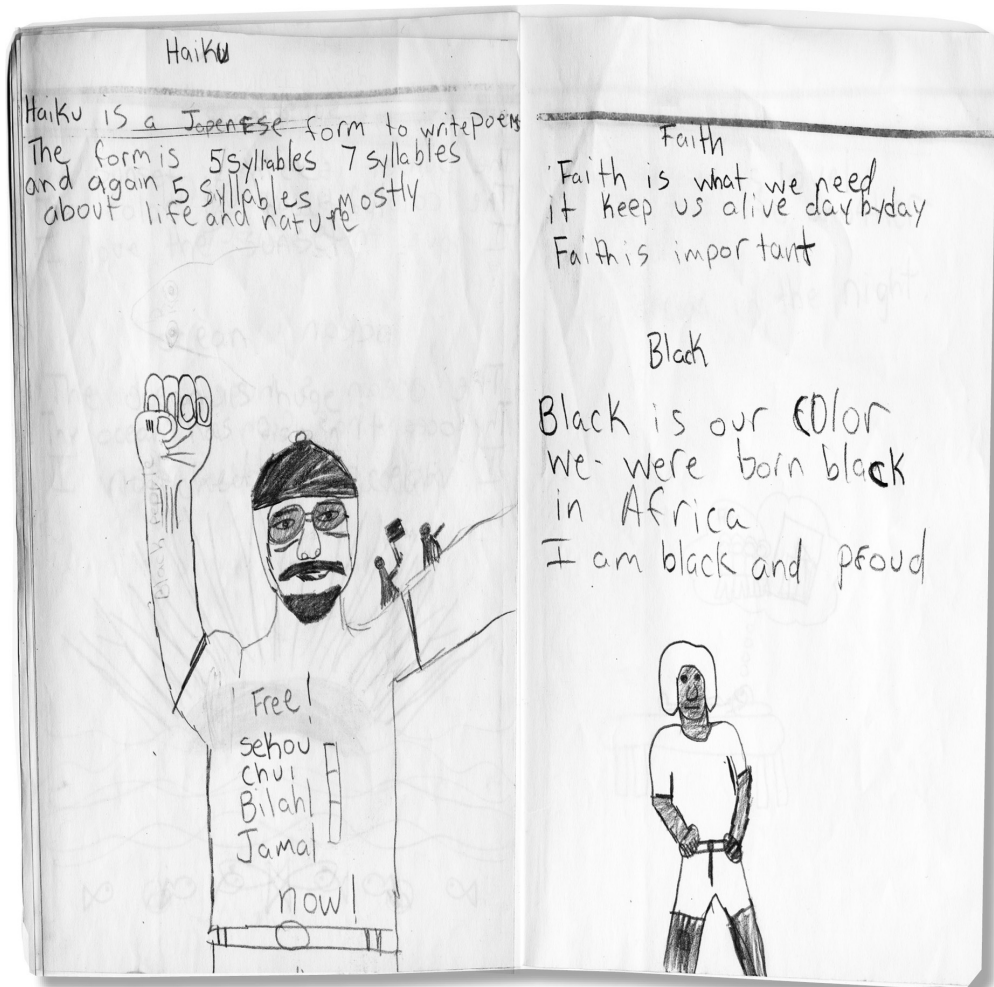 Haiku
Haiku is a Japenese form to write Poems
The form is 5 syllables 7 syllables
and again 5 syllables mostly
about life and nature
Free!
sekou
chui
Bilahl
Jamal
now!
Faith
Faith is what we need
it keep us alive day byday
Faith is important
Black
Black is our color
we were born black
in Africa
I am black and proud